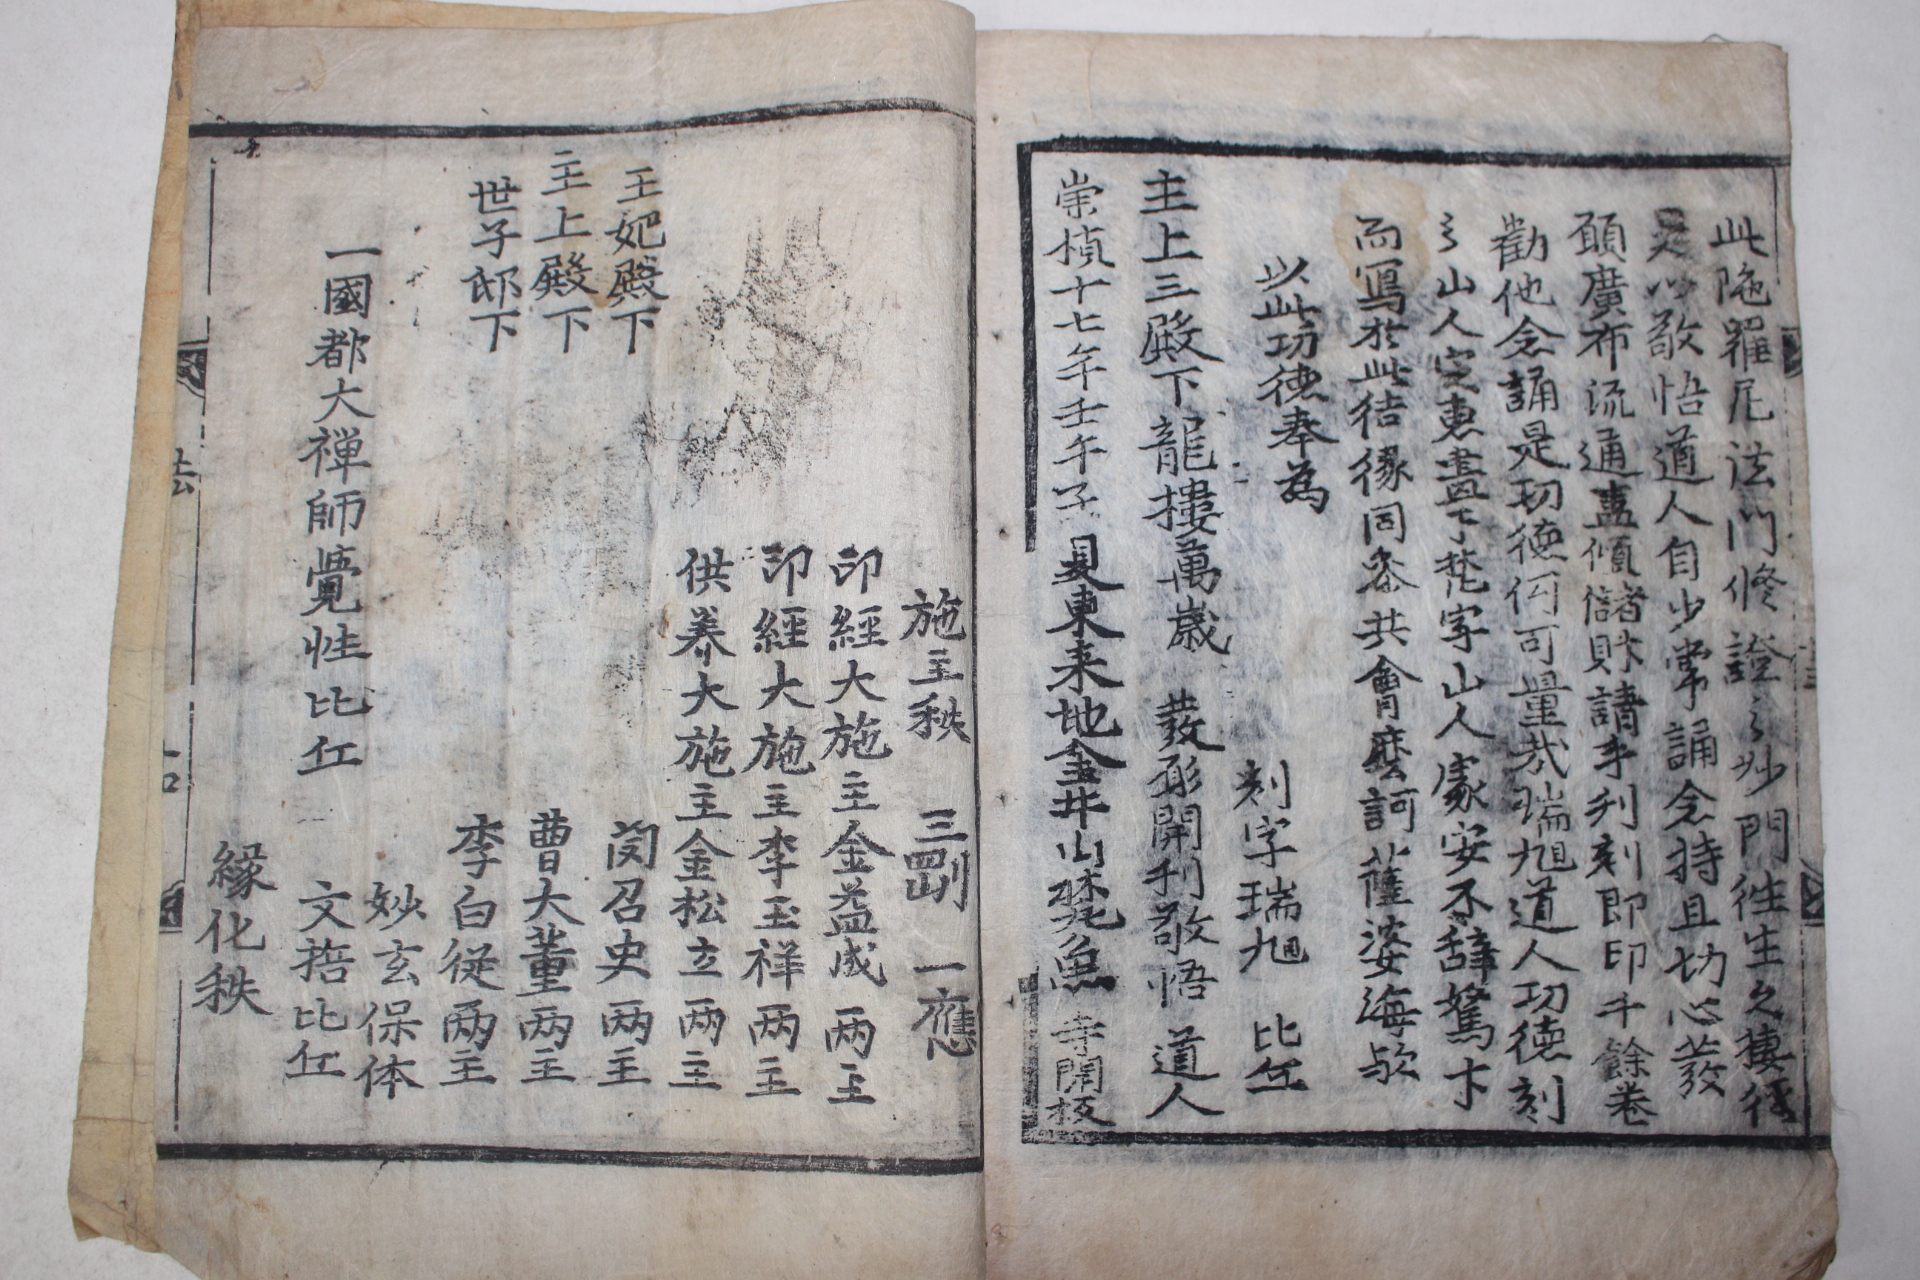 此陁羅尼法門修證之妙門徃生之棲徑
是以敬悟道人自少常誦念持且切心發
願廣布流通盡傾儲財請手刋刻即印千餘卷
勸他念誦是功德何可量哉瑞旭道人功德刻
之山人定惠盡下梵字山人處安不辭駑下
而寫於此結緣同叅共會摩訶薩婆海欤
以此功德奉為 刻字瑞旭 比丘
主上三殿下龍樓萬歲 發願開刋敬悟 道人
崇禎十七年壬午子月東萊地金井山梵魚 寺開板
施主秩 三𠛬 一應
印經大施主金益成 兩主
印經大施主李玉祥 兩主
供養大施主金松立 兩主
王妃殿下 閔召史 兩主
主上殿下 曹大董兩主
世子邸下 李白從兩主
妙玄保体
一國都大禅師覺性比丘 文捂比丘
緣化秩
法